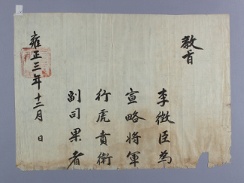 教旨
李徵臣爲
宣略將軍
行虎賁衛
副司果者
雍正三年十二月 日